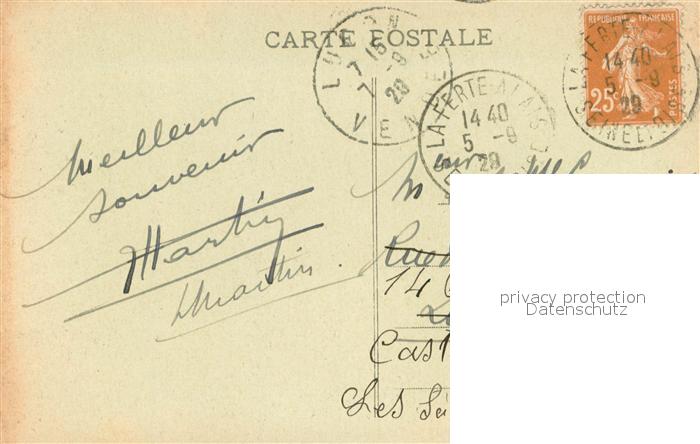 CARTE POSTALE
LUÇON
7 15
7 -9
29
VENDÉE
LA FERTE-ALAIS
14 40
5 -9
29
SEINE ET OISE
REPUBLIQUE FRANÇAISE
25c
POSTES
LA FERTE-ALAIS
14 40
5 -9
29
SEINE ET OISE
Meilleur
souvenir
Martin
Martin
14
Cast
Les Sa
privacy protection
Datenschutz